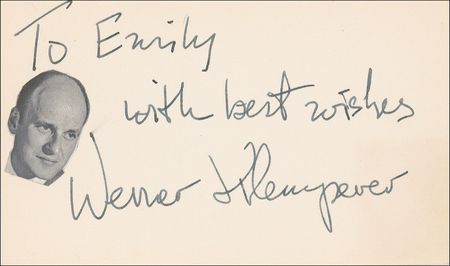 To Emily
with best wishes
Werner Klemperer